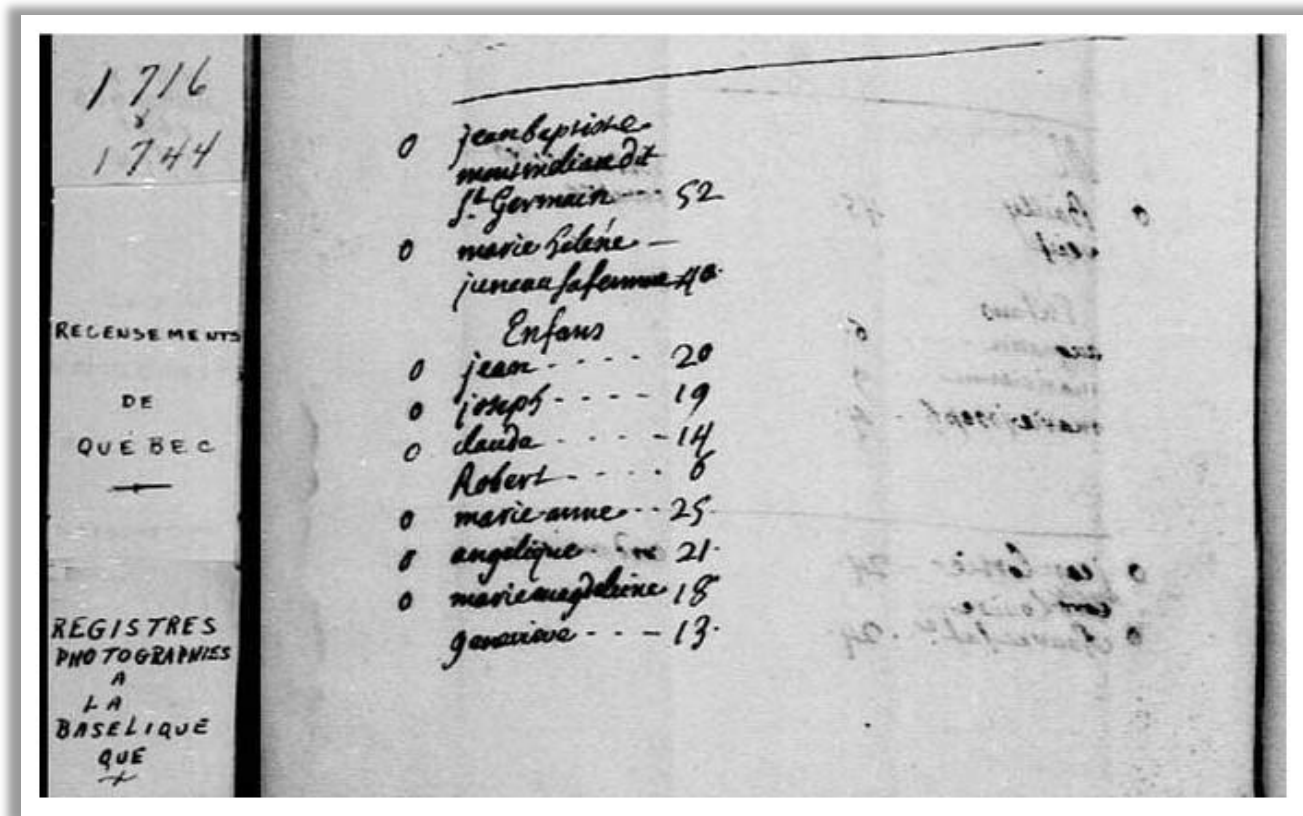 1716
&
1744
RECENSEMENTS
DE
QUÉBEC
REGISTRES
PHOTOGRAPHIES
A
LA
BASELIQUE
QUE
o jean baptiste
monmeliane dit
St. Germain 52
o marie helene
juneau sa femme
Enfans
o jean 20
o joseph 19
o claude 14
Robert
o marie anne 25
o angelique 21
o marie magdeleine 18
genevieve 13